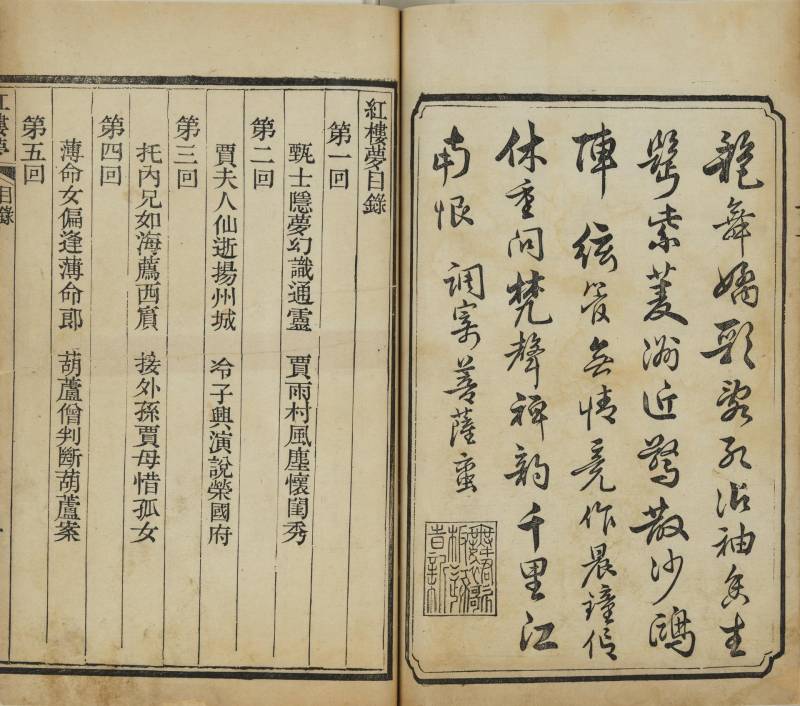 艷舞嬌歌沾袖香生
鬢紫菱洲近驚散沙鷗
陣絃管無情竟作晨鐘信
休重問梵聲禅韵千里江
南恨 調寄菩薩蠻
紅樓夢目錄
第一回
甄士隱夢幻識通靈 賈雨村風塵懷閨秀
第二回
賈夫人仙逝揚州城 冷子興演說榮國府
第三回
托內兄如海薦西賓 接外孫賈母惜孤女
第四回
薄命女偏逢薄命郎 葫蘆僧判斷葫蘆案
第五回
紅樓夢 目錄